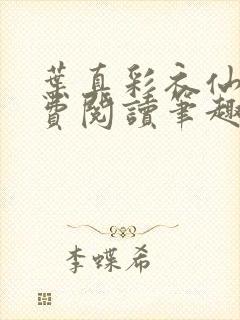 葉真彩衣仙
費閱讀筆趣
李蝶希